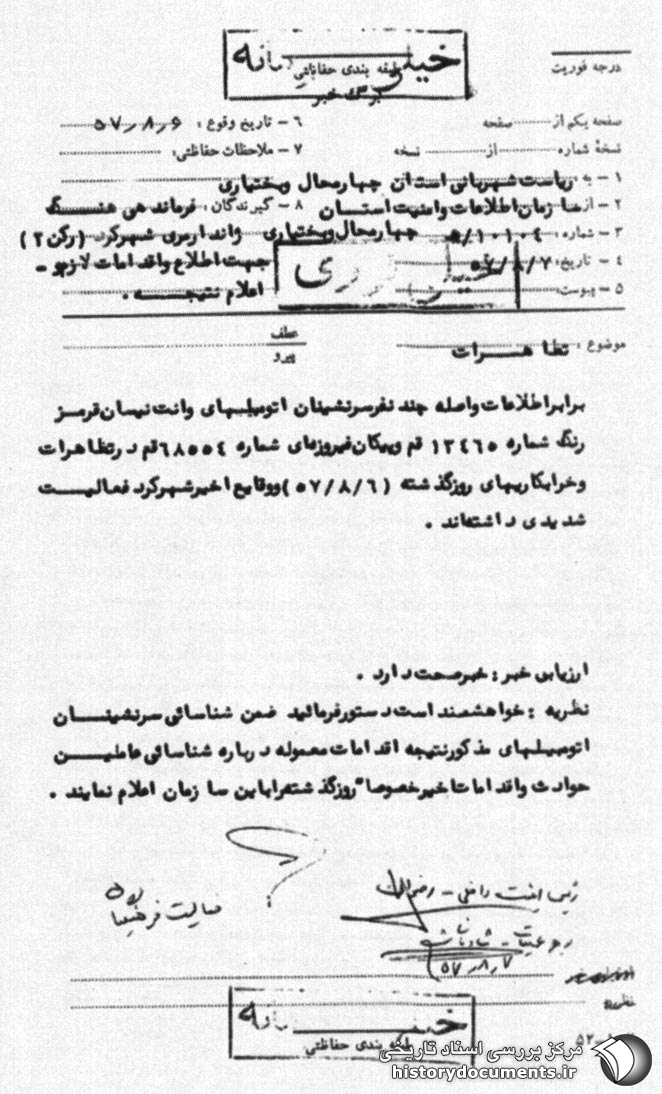 خیلی محرمانه
طبقه بندی حفاظتی
برگ خبر
درجه فوریت
صفحه یکم از صفحه
۶ - تاریخ وقوع : ۵۷/۸/۶
نسخهٔ شماره از نسخه
۷ - ملاحظات حفاظتی:
۱ - به ریاست شهربانی استان چهارمحال وبختیاری
۲ - از سازمان اطلاعات وامنیت استان چهارمحال وبختیاری
۸ - گیرندگان : فرماندهی هنگ ژاندارمری شهرکرد (رکن۲)
۳ - شماره : ۵/۱۰۱۰۴
جهت اطلاع واقدامات لازم و -
۴ - تاریخ: ۵۷/۸/۷
۵ - پیوست:
اعلام نتیجه .
خیلی فوری
عطف
پیرو
موضوع : تظاهرات
برابراطلاعات واصله چند نفرسرنشینان اتومبیلهای وانت نیسان قرمز
رنگ شماره ۱۳۴۶۵ قم وپیکان فیروزه‌ای شماره ۶۸۵۵۴ قم درتظاهرات
وخرابکاریهای روزگذشته (۵۷/۸/۶) ووقایع اخیرشهرکرد فعالیت
شدیدی داشته‌اند .
ارزیابی خبر : خبرصحت دارد .
نظریه : خواهشمند است دستورفرمائید ضمن شناسائی سرنشینان
اتومبیلهای مذکورنتیجه اقدامات معموله درباره شناسائی عاملین
حوادث واقدامات اخیرخصوصا" روزگذشته رابه این سازمان اعلام نمایند .
رئیس امنیت داخلی -
۵۷/۸/۷
نظریه
خیلی محرمانه
طبقه بندی حفاظتی
مرکز بررسی اسناد تاریخی
historydocuments.ir